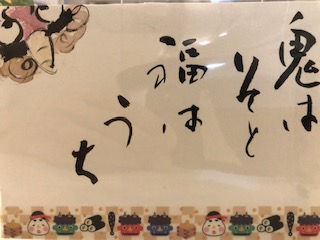 鬼は
そと
福は
うち